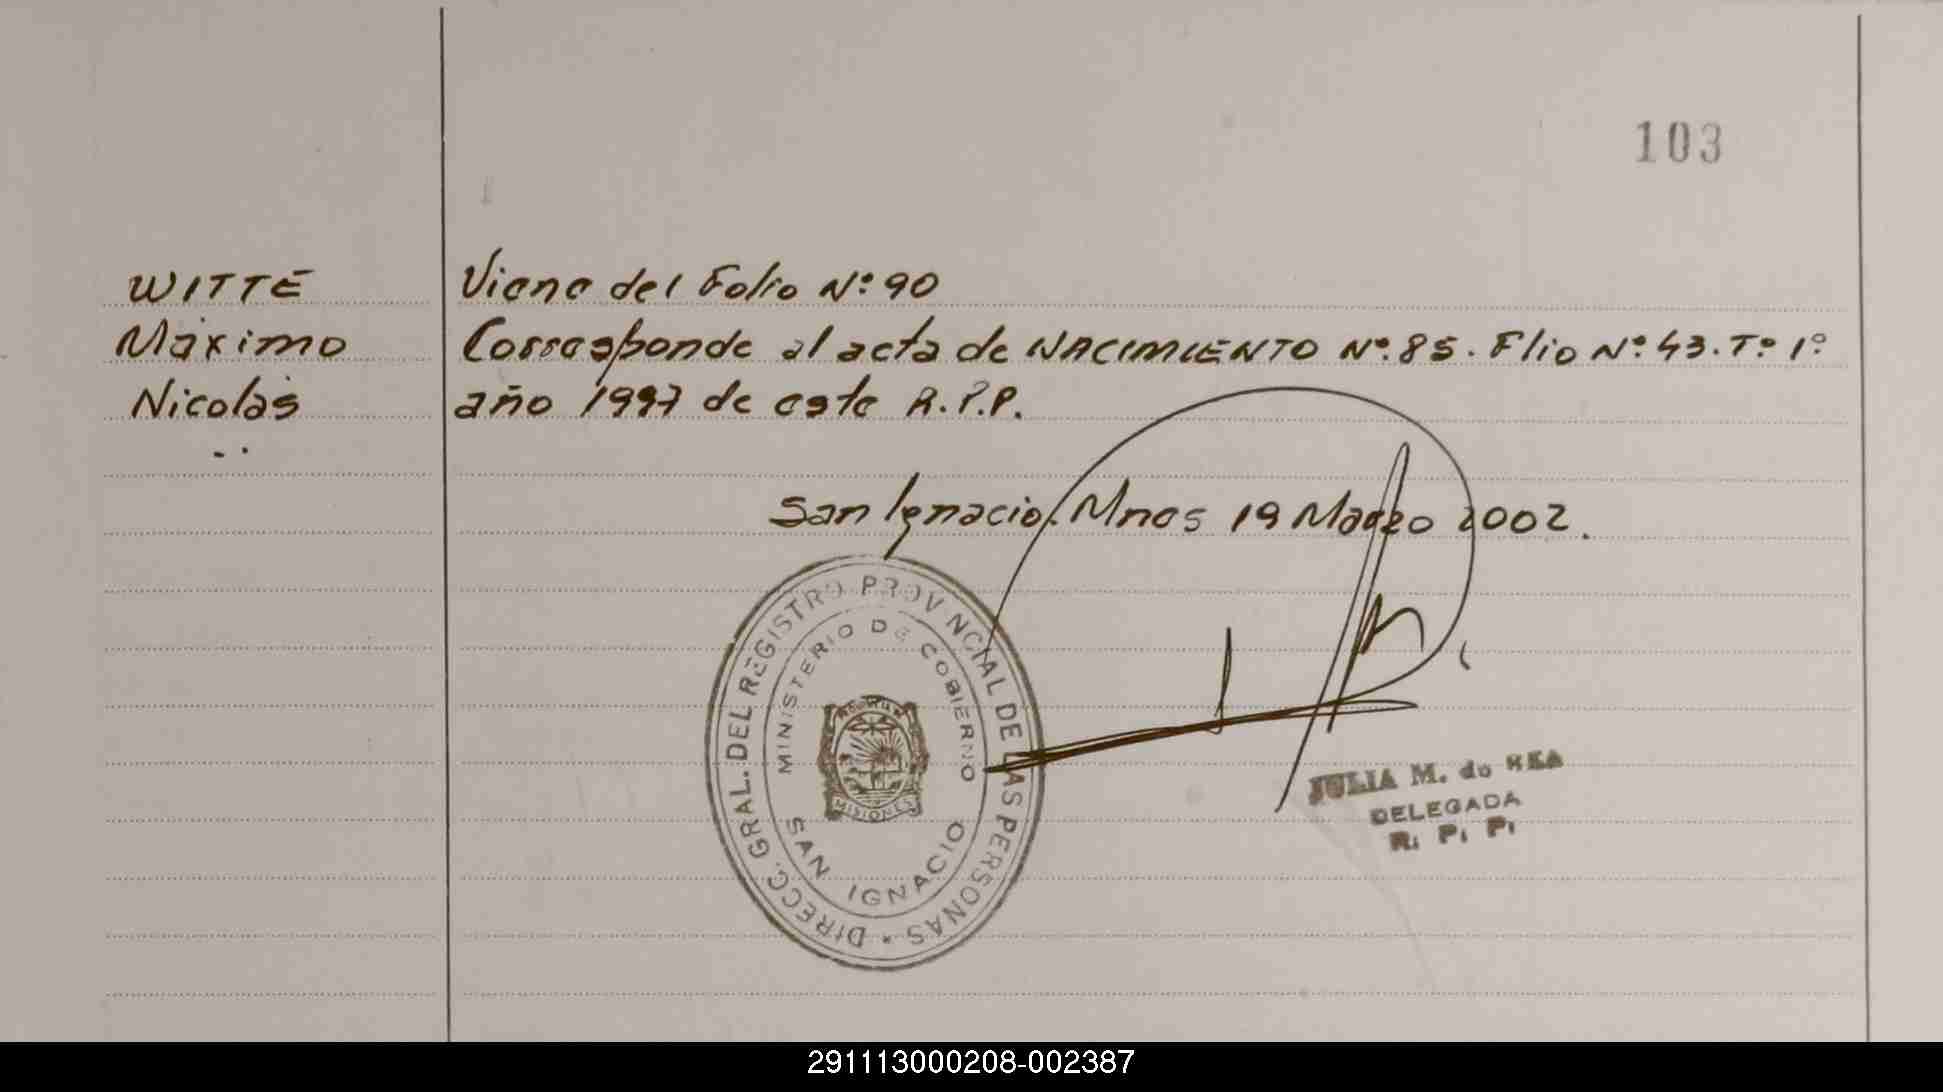 103
WITTE
Máximo
Nicolás
Viene del Folio Nº 90
Corresponde al acta de NACIMIENTO Nº 85. Flio Nº 43. Tº 1º
año 1997 de este R.P.P.
San Ignacio, Mnes 19 Marzo 2002.
DIRECC. GRAL. DEL REGISTRO PROVINCIAL DE LAS PERSONAS *
MINISTERIO DE GOBIERNO
MISIONES
SAN IGNACIO
JULIA M. de REA
DELEGADA
R. P. P.
291113000208-002387